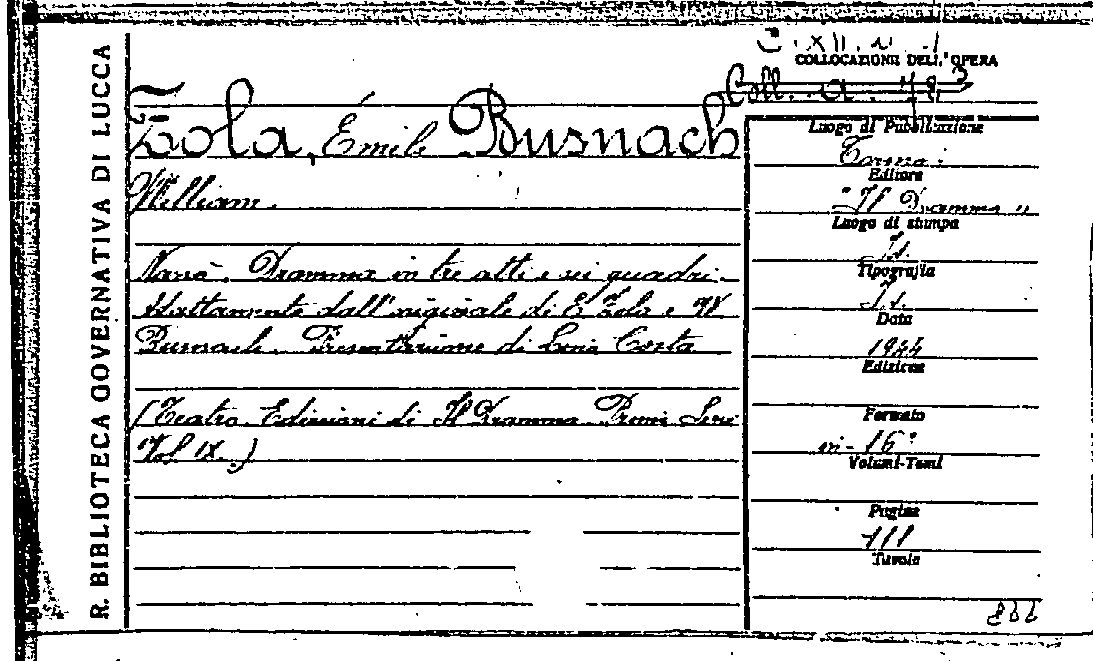 R. BIBLIOTECA GOVERNATIVA DI LUCCA
COLLOCAZIONE DELL'OPERA
Coll. a.
Zola, Émile Busnach
William.
Nanà. Dramma in tre atti e sei quadri.
Adattamento dall'originale di E. Zola e W.
Busnach. Presentazione di Costa
(Teatro. Edizioni di Il Dramma. Prima Serie
Vol. IX.)
Luogo di Pubblicazione
Torino:
Editore
"Il Dramma"
Luogo di stampa
Tipografia
Data
1944
Edizione
Formato
in-16°
Volumi-Tomi
Pagine
111
Tavole